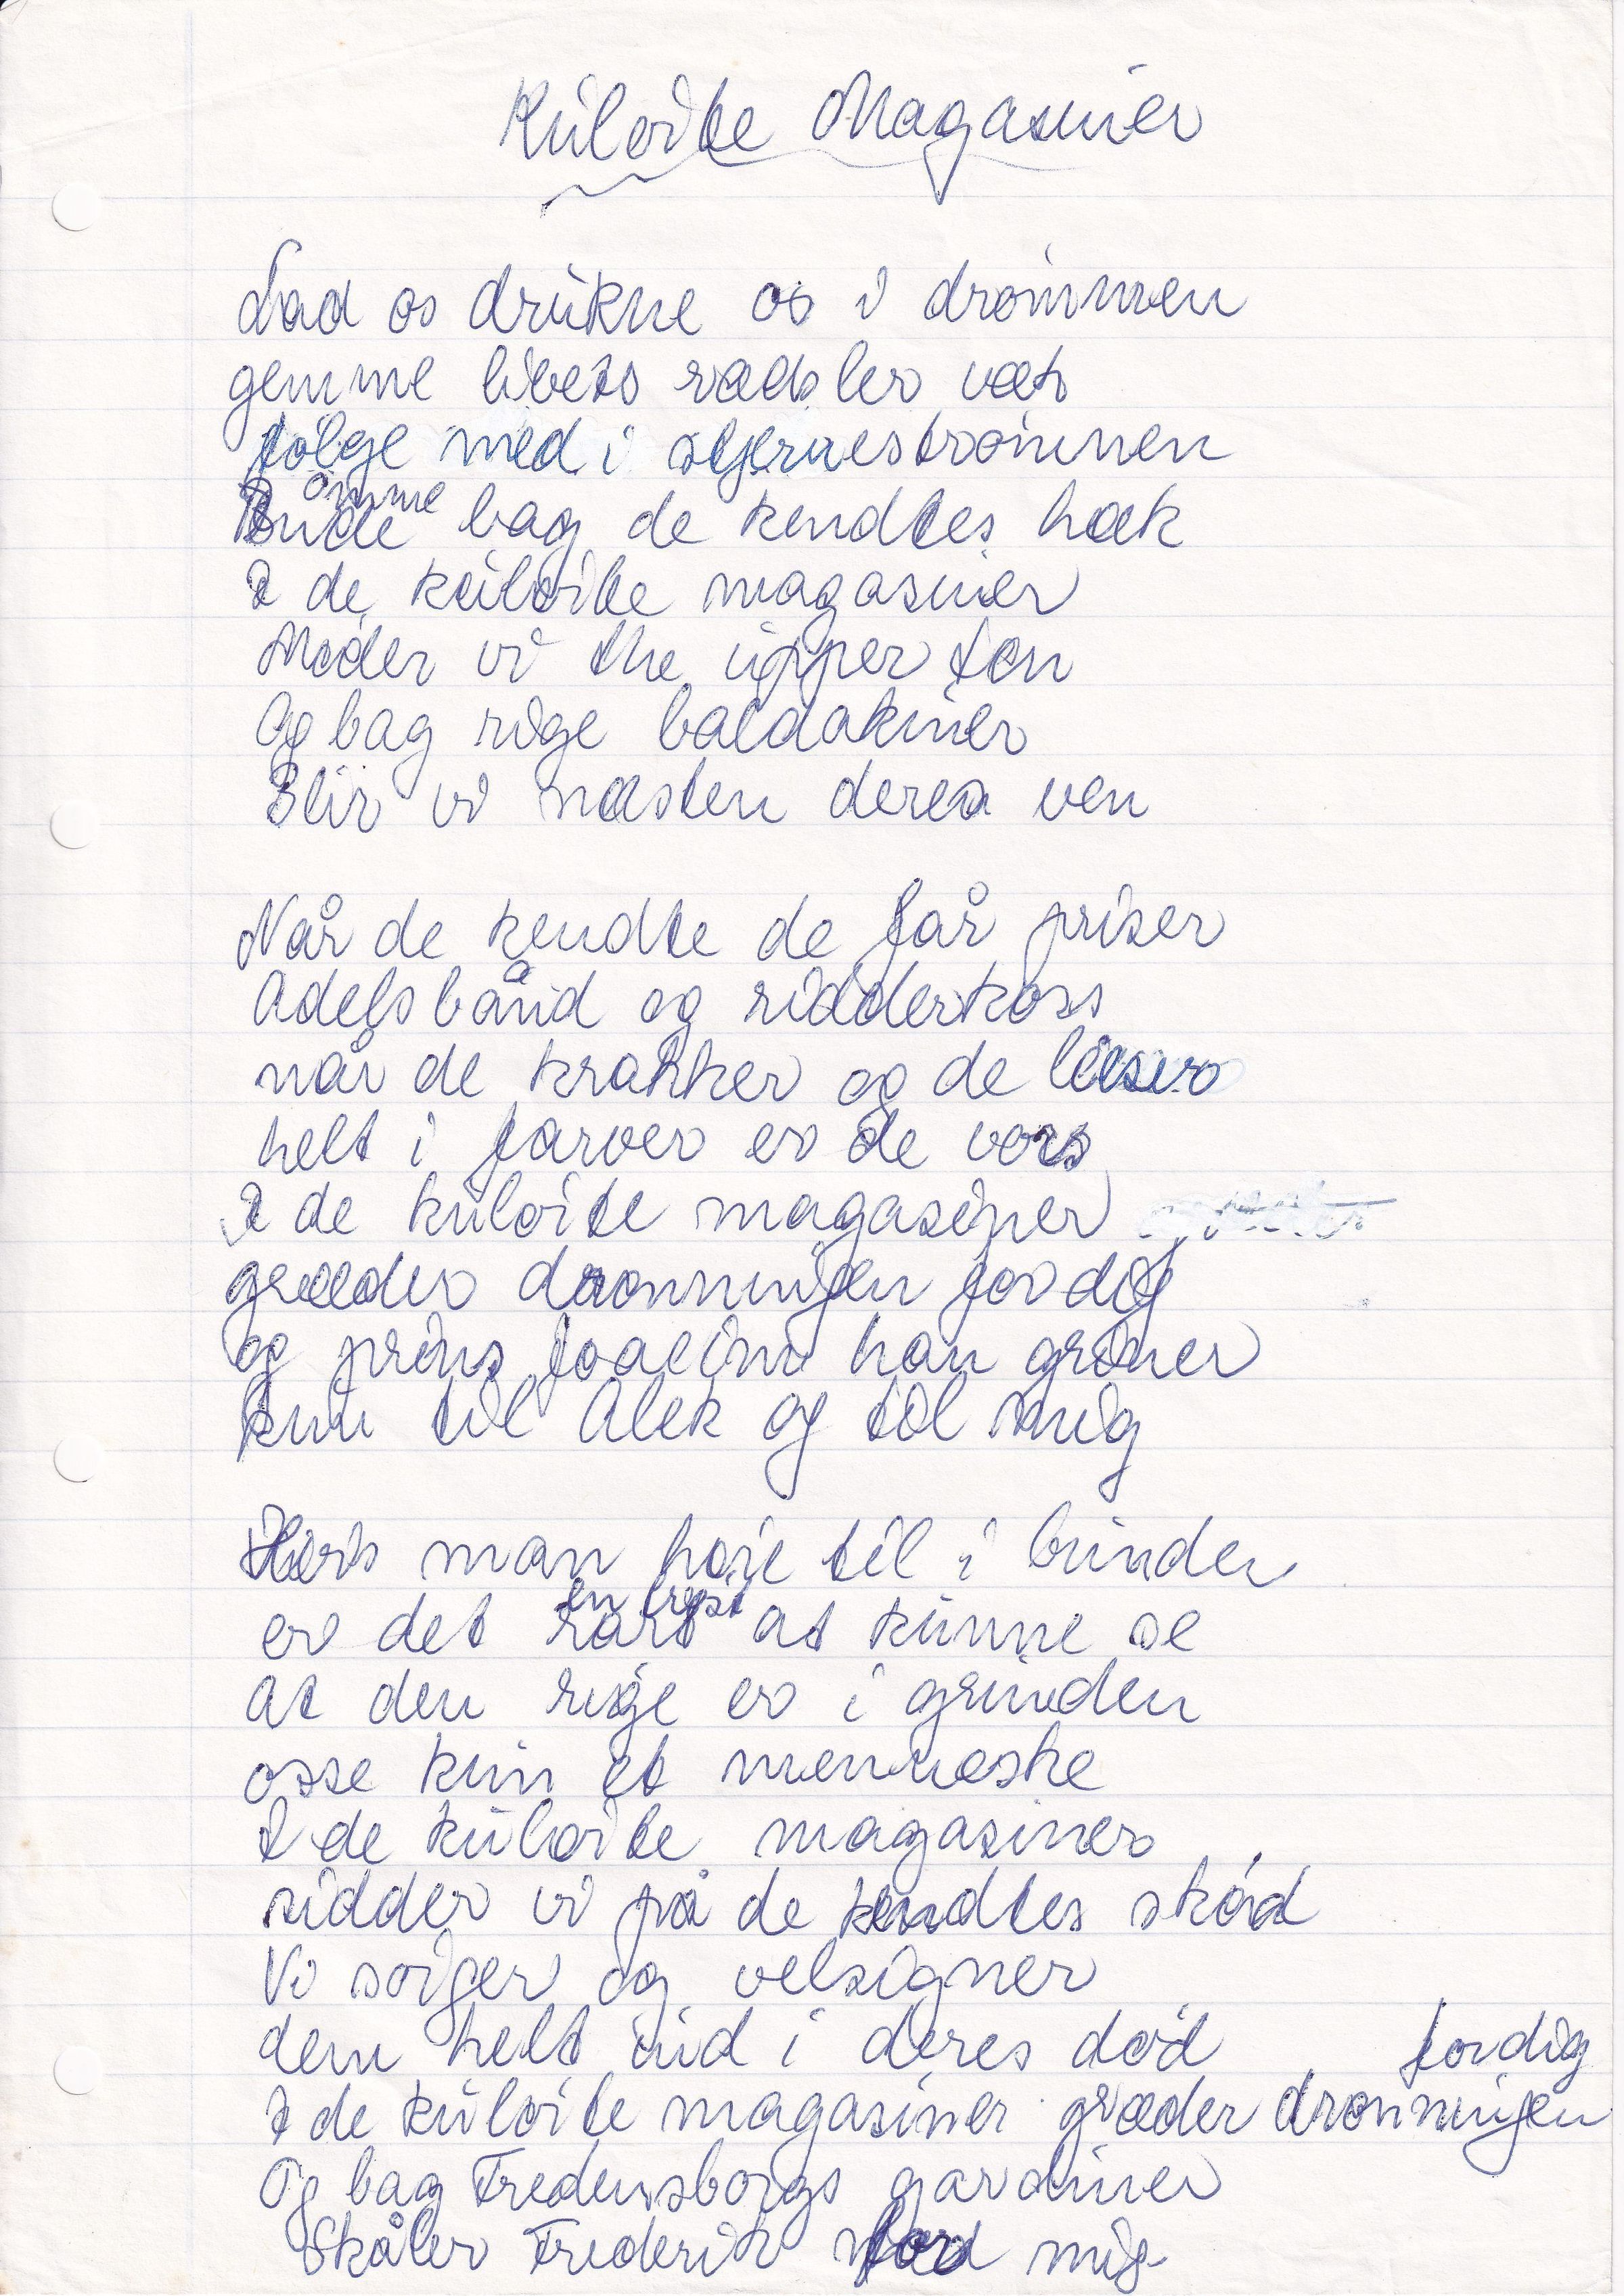 Kulørte Magasiner
Lad os drukne os i drømmen
gemme livets rædsler væk
følge med i stjernestrømmen
ømme
bag de kendtes hæk
I de kulørte magasiner
Møder vi the upper ten
Og bag rige baldakiner
Blir vi næsten deres ven
Når de kendte de får priser
Adelsbånd og ridderkors
når de krakker og de
helt i farver er de vors
I de kulørte magasiner
græder dronningen for dig
og prins Joacim han griner
kun til Alex og til mig
Hvis man høje til i bunden
en trøst
er det rart at kunne se
at den rige er i grunden
osse kun et menneske
I de kulørte magasiner
sidder vi på de kendtes skød
Vi sørger og velsigner
dem helt ind i deres død
for dig
I de kulørte magasiner græder dronningen
Og bag Fredensborgs gardiner
Skåler Frederik for mig